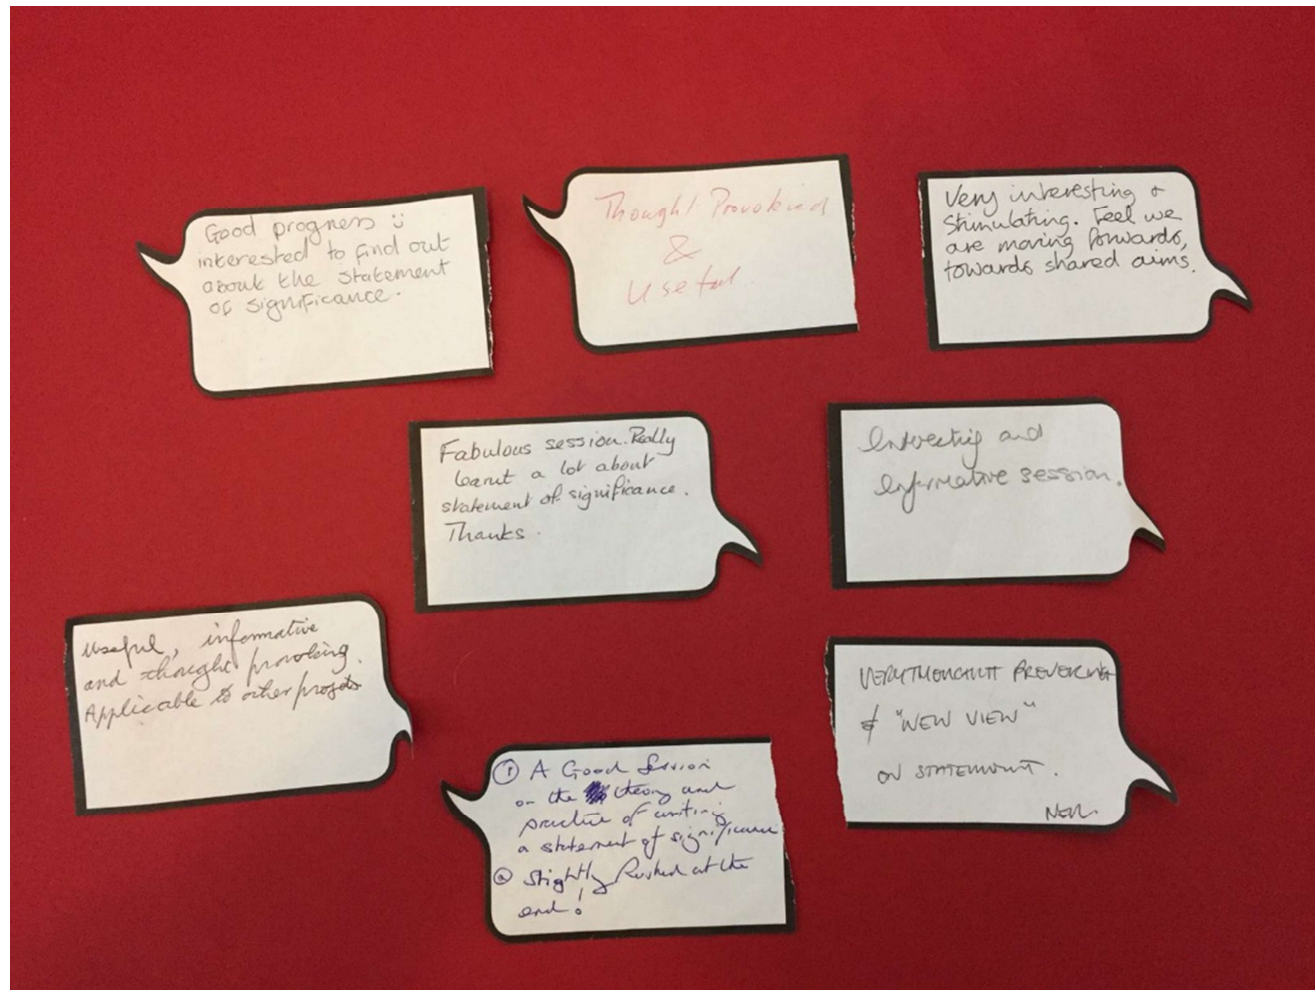 Good progress ü
interested to find out
about the statement
of significance.
Thought Provoking
&
Useful.
Very interesting &
Stimulating. Feel we
are moving forwards,
towards shared aims.
Fabulous session. Really
learnt a lot about
statement of significance.
Thanks.
Interesting and
informative session.
Useful, informative
and thought provoking.
Applicable to other projects
VERY THOUGHT PROVOKING
& "NEW VIEW"
ON STATEMENT.
① A Good Session
on the theory and
practice of writing
a statement of significance
② Slightly Rushed at the
end!